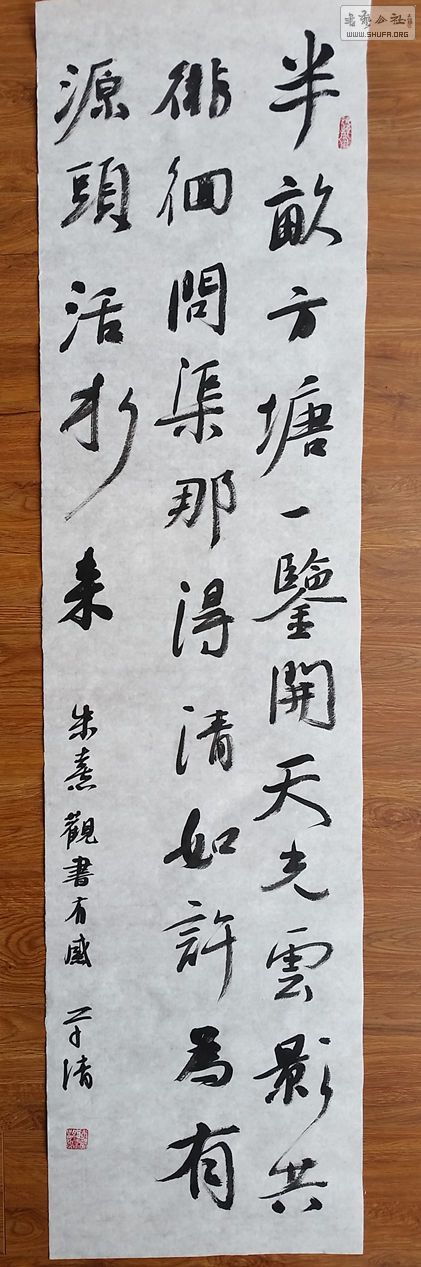 半畝方塘一鑒開天光雲影共
徘徊問渠那得清如許為有
源頭活水来
朱熹觀書有感 清
公社
WWW.SHUFA.ORG